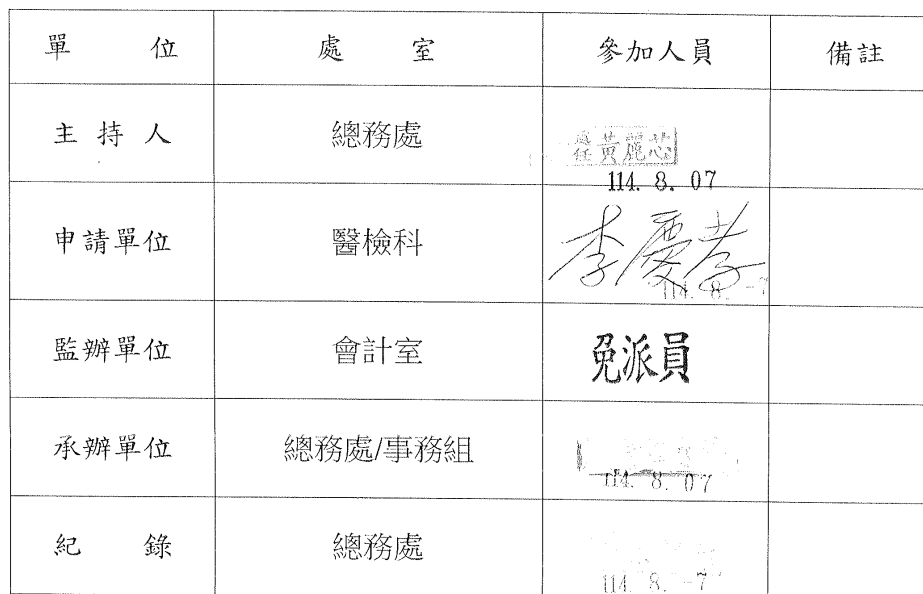 單 位 處 室 參加人員 備註
主 持 人 總務處 處任 黃麗芯
114. 8. 07
申請單位 醫檢科 李慶孝
114. 8. -7
監辦單位 會計室 免派員
承辦單位 總務處/事務組
114. 8. 07
紀 錄 總務處
114. 8. -7